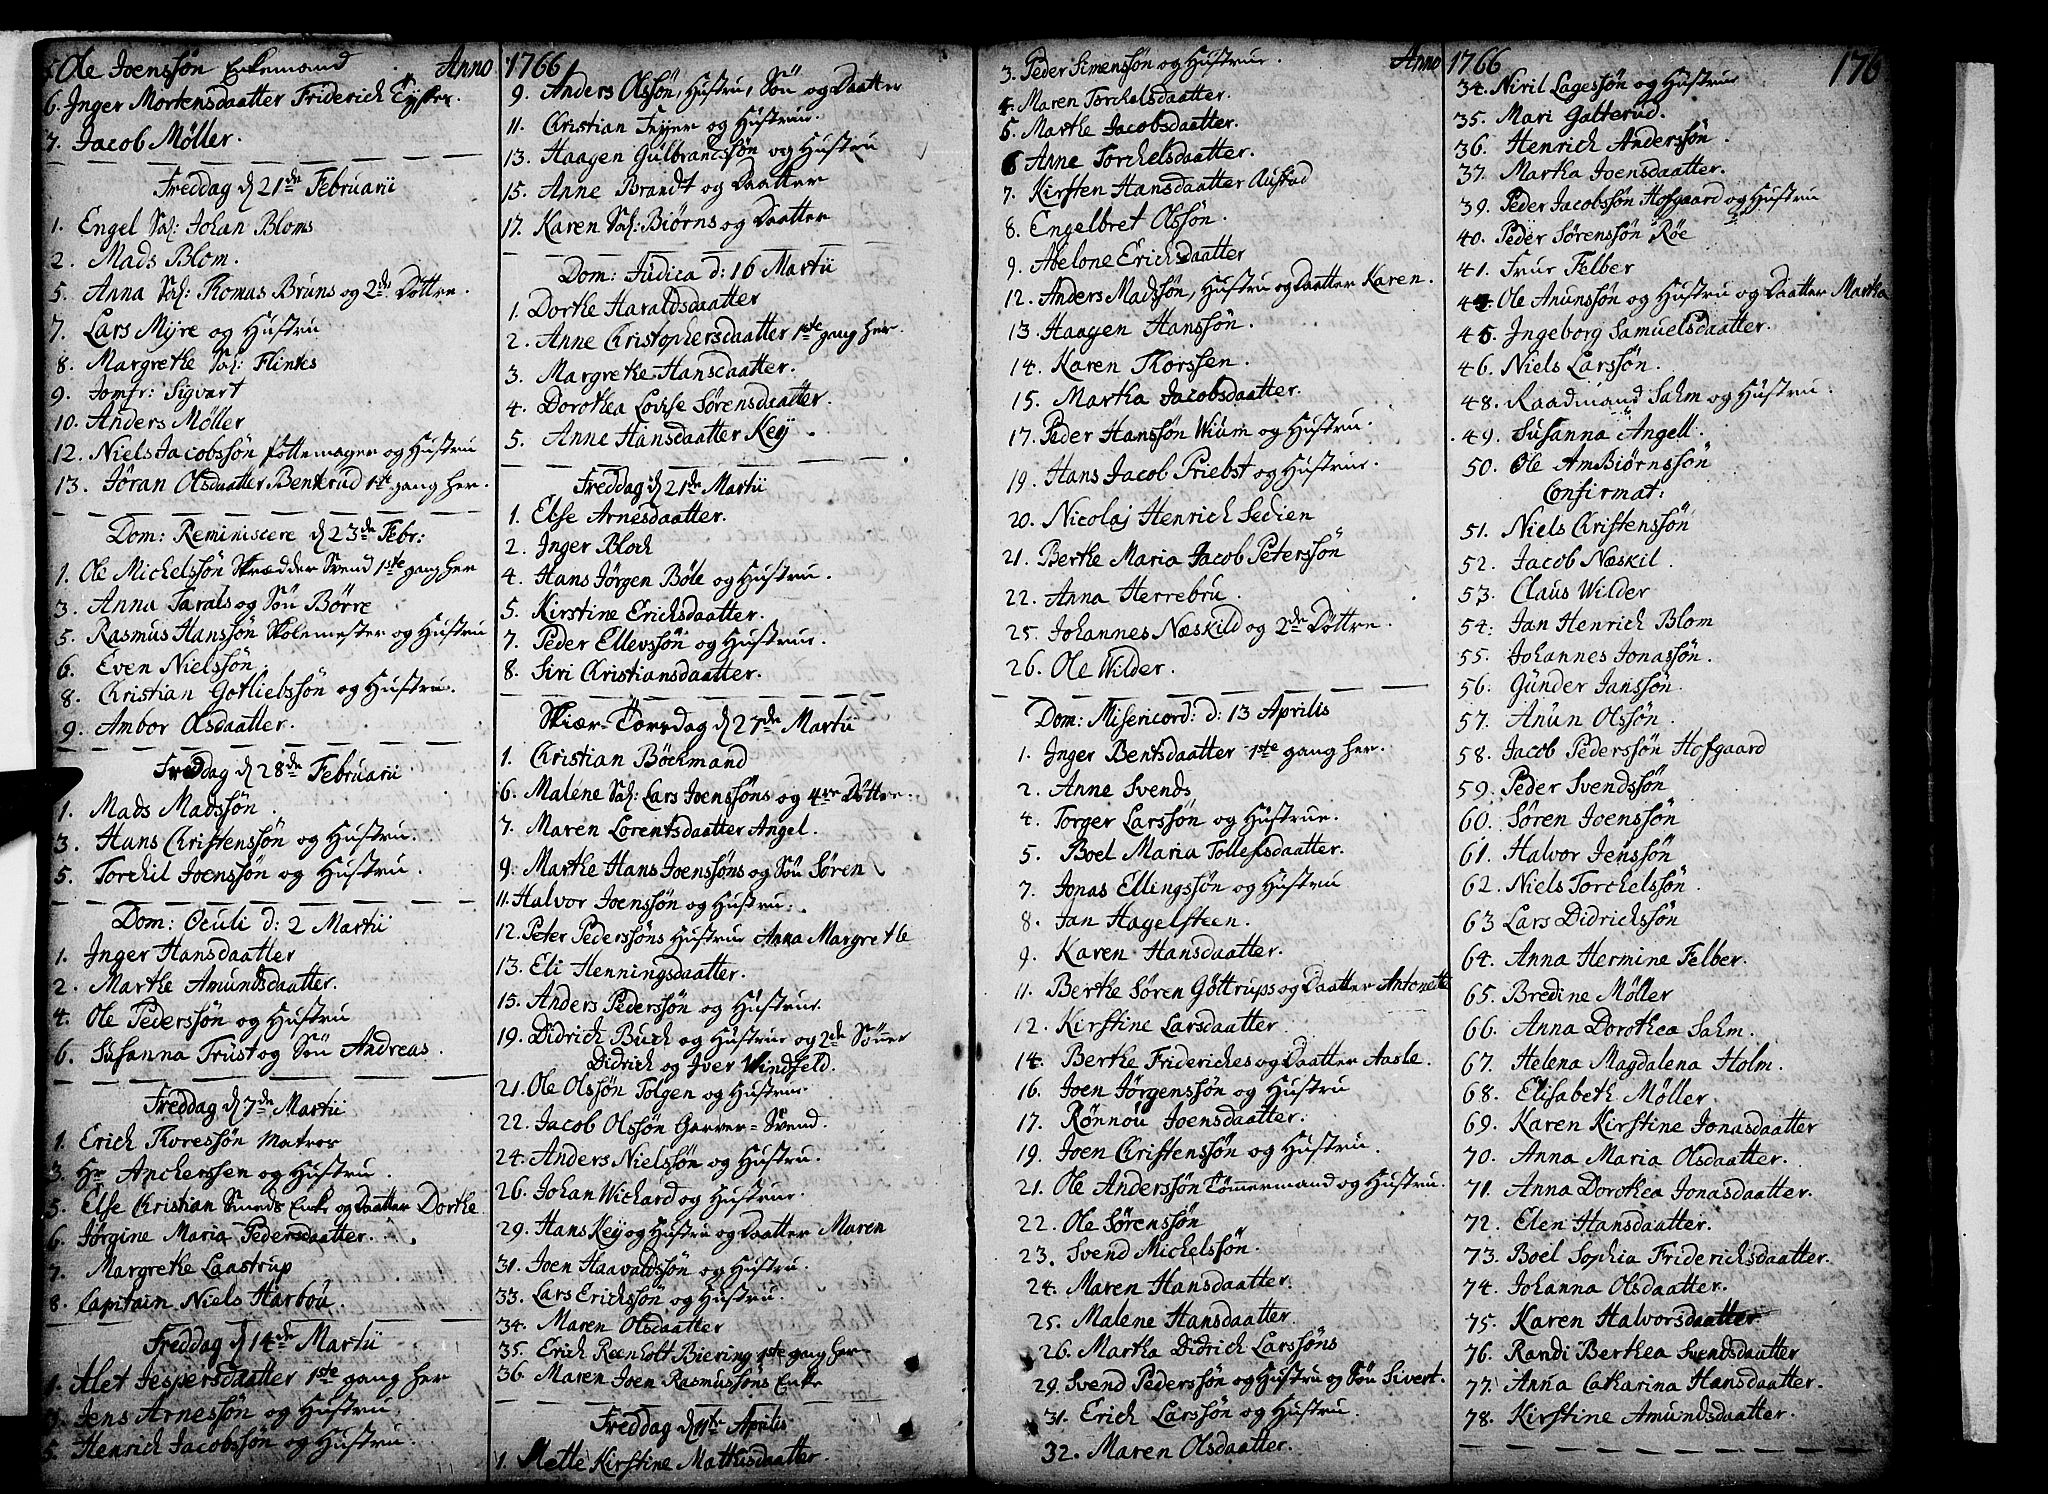 Anno 1766
5. Ole Joenssøn Enkemand
6. Inger Mortensdaatter Friderich
7. Jacob Møller.
Freddag d 21de Februarii
1. Engel Sal: Johan Bloms
2. Mads Blom.
5. Anna Sal: Thomas Bruns og 2de Døttre.
7. Lars Myre og Hustru
8. Margrethe Sal: Flinkes
9. Jomfr: Sigvart
10. Anders Møller
12. Niels Jacobssøn Pottemager og Hustru
13. Jøran Olsdaatter Bentrud 1ste gang her.
Dom: Reminiscere d 23de Febr:
1. Ole Michelssøn Skrædder Svend 1ste gang her
3. Anna Tarals og Søn Børre
5. Rasmus Hanssøn Skolemester og Hustru
6. Even Nielssøn
8. Christian Gotliebssøn og Hustru.
9. Ambor Olsdaatter.
Freddag d 28de Februarii
1. Mads Madssøn.
3. Hans Christenssøn og Hustru.
5. Torchil Joenssøn og Hustru.
Dom: Oculi d: 2 Martii
1. Inger Hansdaatter
2. Marthe Amundsdaatter.
4. Ole Pederssøn og Hustru
6. Susanna Trust og Søn Andreas.
Freddag d 7de Martii
1. Erich Thoressøn Matros
3. Hr Anchersen og Hustru.
5. Else Christian Smeds Enke og Daatter Dorthe
6. Jørgine Maria Pedersdaatter.
7. Margrethe Laastrup
8. Capitain Niels Harbou.
Freddag d 14de Martii
1. Alet Jespersdaatter 1ste gang her
3. Jens Arnessøn og Hustru.
5. Henrich Jacobssøn og Hustru.
9. Anders Olssøn, Hustru, Søn og Daatter
11. Christian Feyer og Hustru.
13. Haagen Gulbrandssøn og Hustru
15. Anne Brandt og Daatter
17. Karen Sal: Biørns og Daatter
Dom: Judica d: 16 Martii
1. Dorthe Haraldsdaatter
2. Anne Christophersdaatter 1ste gang her.
3. Margrethe Hansdaatter.
4. Dorothea Lovise Sørensdaatter.
5. Anne Hansdaatter Keÿ.
Freddag d 21de Martii
1. Else Arnesdaatter.
2. Inger Bloch
4. Hans Jørgen Bøle og Hustru.
5. Kirstine Erichsdaatter.
7. Peder Ellevssøn og Hustru.
8. Siri Christiansdaatter.
Skiær-Torsdag d 27de Martii
1. Christian Böckmand
6. Malene Sal: Lars Joenssøns og 4re Døttre.
7. Maren Lorentsdaatter Angel.
9. Marthe Hans Joenssøns og Søn Søren
11. Halvor Joenssøn og Hustru.
12. Peter Pederssøns Hustrue Anna Margrethe
13. Eli Henningsdaatter.
15. Anders Pederssøn og Hustrue
19. Didrich Buch og Hustrue og 2de Sønner
Didrich og Iver Windfeld.
21. Ole Olssøn Tolgen og Hustrue
22. Jacob Olssøn Garver-Svend.
24. Anders Nielssøn og Hustru.
26. Johan Wichard og Hustrue.
29. Hans Keÿ og Hustru og Daatter Maren
31. Joen Haavaldssøn og Hustru.
33. Lars Erichssøn og Hustru.
34. Maren Olsdaatter
35. Erich Reenholt Biering 1ste gang her
36. Maren Joen Rasmussøns Enke
Freddag d 11te Aprilis
1. Mette Kirstine Mathisdaatter.
Anno 1766
176
3. Peder Simenssøn og Hustrue.
4. Maren Torchelsdaatter.
5. Marthe Jacobsdaatter.
6 Anne Torchelsdaatter.
7. Kirsten Hansdaatter Austad
8. Engelbret Olssøn.
9. Abelone Erichsdaatter
12. Anders Madssøn, Hustru og Daatter Karen.
13. Haagen Hanssøn.
14. Karen Thorssen.
15. Martha Jacobsdaatter.
17. Peder Hanssøn Wium og Hustru.
19. Hans Jacob Priebst og Hustrue.
20. Nicolaj Henrich Sedien
21. Berthe Maria Jacob Peterssøn
22. Anna Herrebru.
25. Johannes Næskild og 2de Døttre.
26. Ole Wilder.
Dom: Misericord: d: 13 Aprilis
1. Inger Bentsdaatter 1ste gang her.
2. Anne Svends
4. Torger Larssøn og Hustrue.
5. Boel Maria Tollefsdaatter.
7. Jonas Ellingssøn og Hustru
8. Jan Hagelsteen.
9. Karen Hansdaatter.
11. Berthe Søren Gøttrups og Daatter Antonette
12. Kirstine Larsdaatter
14. Berthe Friderichs og Daatter Aasle.
16. Joen Jørgenssøn og Hustru
17. Rønnou Joensdaatter.
19. Joen Christenssøn og Hustru.
21. Ole Anderssøn Tömmermand og Hustru.
22. Ole Sørenssøn
23. Svend Michelssøn.
24. Maren Hansdaatter.
25. Malene Hansdaatter.
26. Martha Didrich Larssøns
29. Svend Pederssøn og Hustru og Søn Sivert.
31. Erich Larssøn og Hustru.
32. Maren Olsdaatter.
34. Niril Lagessøn og Hustrue
35. Mari Gatterud.
36. Henrich Anderssøn
37. Martha Joensdaatter.
39. Peder Jacobssøn Hofgaard og Hustru
40. Peder Sørenssøn Røe
41. Frue Felber
44. Ole Anunssøn og Hustru og Daatter Martha
45. Ingeborg Samuelsdaatter.
46. Niels Larssøn.
48. Raadmand Sahm og Hustru.
49. Susanna Angell.
50. Ole AmBiørnssøn
Confirmat:
51. Niels Christenssøn
52. Jacob Næskil.
53. Claus Wilder
54: Jan Henrich Blom
55. Johannes Jonassøn.
56. Günder Janssøn.
57. Anün Olssøn.
58. Jacob Pederssøn Hofgaard
59. Peder Svendssøn
60. Søren Joenssøn
61. Halvor Jenssøn
62. Niels Torchelssøn.
63 Lars Didrichssøn
64. Anna Hermine Felber.
65. Bredine Møller
66. Anna Dorothea Sahm.
67. Helena Magdalena Holm.
68. Elisabeth Møller.
69. Karen Kirstine Jonasdaatter
70. Anna Maria Olsdaatter.
71. Anna Dorothea Jonasdaatter.
72. Elen Hansdaatter.
73. Boel Sophia Friderichsdaatter.
74. Johanna Olsdaatter.
75. Karen Halvorsdaatter.
76. Randi Berthea Svendsdaatter
77. Anna Catharina Hansdaatter.
78. Kirstine Amundsdaatter.